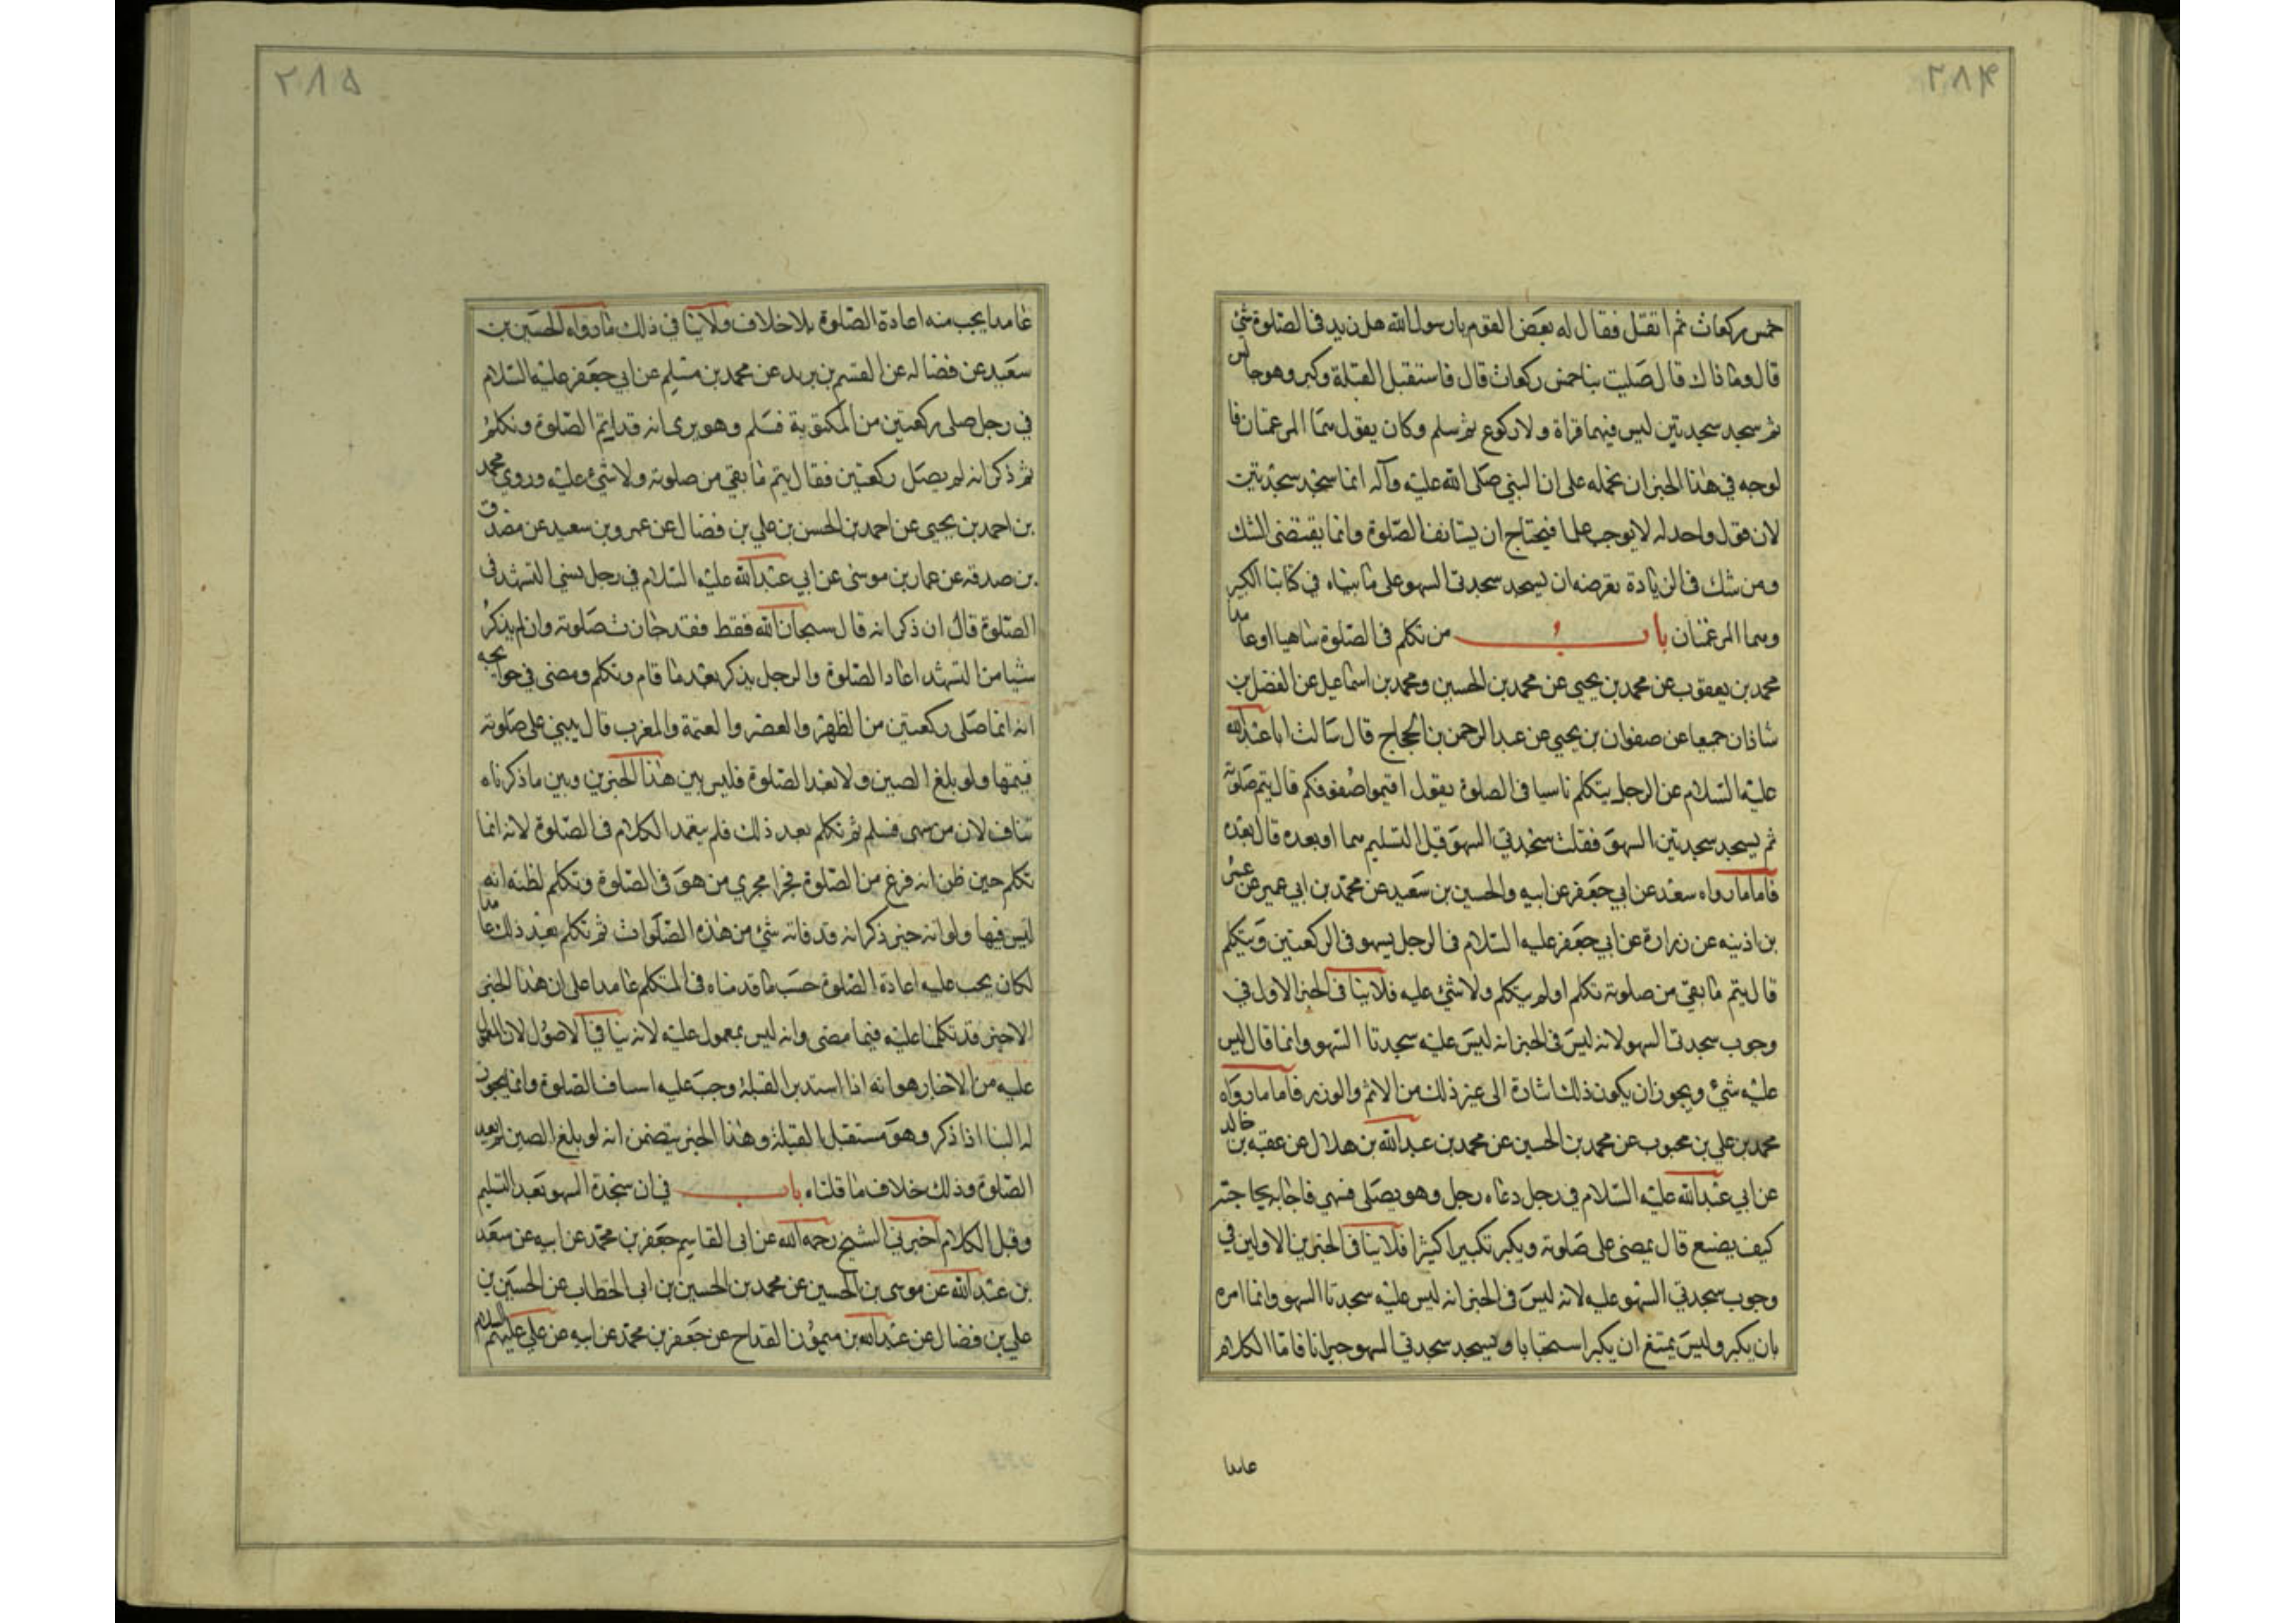 ٢٨۴
خمس ركعات ثم انفتل فقال له بعض القوم يا رسول الله هل زيد في الصلوة شئ
قال وما ذاك قال صليت بنا خمس ركعات قال فاستقبل القبلة وكبر وهو جالس
ثم سجد سجدتين ليس فيهما قراة ولا ركوع ثم سلم وكان يقول هما المرغمتان فا
لوجه في هذا الخبر ان نحمله على ان النبي صلى الله عليه وآله انما سجد سجدتين
لان قول واحد له لا يوجب علما فيحتاج ان يستانف الصلوة وانما يقتضى الشك
ومن شك في الزيادة ففرضه ان يسجد سجدتي السهو على ما بيناه في كتابنا الكبير
وهما المرغمتان باب من تكلم في الصلوة ساهيا او عامدا
محمد بن يعقوب عن محمد بن يحيى عن محمد بن الحسين ومحمد بن اسماعيل عن الفضل بن
شاذان جميعا عن صفوان بن يحيى عن عبد الرحمن بن الحجاج قال سالت ابا عبد الله
عليه السلام عن الرجل يتكلم ناسيا في الصلوة يقول اقيموا صفوفكم قال يتم صلوته
ثم يسجد سجدتين السهو فقلت سجدتي السهو قبل التسليم هما او بعده قال بعده
فاما ما رواه سعد عن ابي جعفر عن ابيه والحسين بن سعيد عن محمد بن ابي عمير عن عمر
بن اذينه عن زرارة عن ابي جعفر عليه السلام في الرجل يسهو في الركعتين ويتكلم
قال يتم ما بقي من صلوته تكلم او لم يتكلم ولا شئ عليه فلا ينافي الخبر الاول في
وجوب سجدتي السهو لانه ليس في الخبر انه ليس عليه سجدتا السهو وانما قال ليس
عليه شئ ويجوز ان يكون ذلك اشارة الى غير ذلك من الاثم والوزر فاما ما رواه
محمد بن علي بن محبوب عن محمد بن الحسين عن محمد بن عبد الله بن هلال عن عقبه بن خالد
عن ابي عبد الله عليه السلام في رجل دعاه رجل وهو يصلى فسهى فاجابه بحاجته
كيف يصنع قال يمضى على صلوته ويكبر تكبيرا كثيرا فلا ينافي الخبرين الاولين في
وجوب سجدتي السهو عليه لانه ليس في الخبر انه ليس عليه سجدتا السهو وانما امره
بان يكبر وليس يمتنع ان يكبر استحبابا ويسجد سجدتي السهو جبرانا فاما الكلام
عامدا
٢٨۵
عامدا يجب منه اعادة الصلوة بلا خلاف ولا ينافي ذلك ما رواه الحسين بن
سعيد عن فضاله عن القسم بن بريد عن محمد بن مسلم عن ابي جعفر عليه السلام
في رجل صلى ركعتين من المكتوبة فسلم وهو يرى انه قد اتم الصلوة وتكلم
ثم ذكر انه لم يصل ركعتين فقال يتم ما بقي من صلوته ولا شئ عليه وروي محمد
بن احمد بن يحيى عن احمد بن الحسن بن علي بن فضال عن عمرو بن سعيد عن مصدق
بن صدقه عن عمار بن موسى عن ابي عبد الله عليه السلام في رجل نسي التشهد في
الصلوة قال ان ذكر انه قال سبحان الله فقط فقد جازت صلوته وان لم يذكر
شيا من التشهد اعاد الصلوة والرجل يذكر بعد ما قام وتكلم ومضى في حوايجه
انه انما صلى ركعتين من الظهر والعصر والعتمة والمغرب قال يبني على صلوته
فيتمها ولو بلغ الصين ولا يعيد الصلوة فليس بين هذا الخبرين وبين ما ذكرناه
تناف لان من سهى فسلم ثم تكلم بعد ذلك فلم يتعمد الكلام في الصلوة لانه انما
تكلم حين ظن انه فرغ من الصلوة فجرا مجري من هو في الصلوة وتكلم لظنه انه
ليس فيها ولو انه حين ذكر انه قد فاته شئ من هذه الصلوات ثم تكلم بعد ذلك عامدا
لكان يجب عليه اعادة الصلوة حسب ما قدمناه في المتكلم عامدا على ان هذا الخبر
الاخير قد تكلمنا عليه فيما مضى وانه ليس بمعمول عليه لانه ينافي الاصول لان المعمول
عليه من الاخبار هو انه اذا استدبر القبلة وجب عليه استيناف الصلوة وانما يجوز
له البنا اذا ذكر وهو مستقبل القبلة وهذا الخبر يتضمن انه لو بلغ الصين لم يعد
الصلوة وذلك خلاف ما قلناه باب في ان سجدة السهو بعد التسليم
وقبل الكلام اخبرني الشيخ رحمه الله عن ابى القاسم جعفر بن محمد عن ابيه عن سعد
بن عبد الله عن موسى بن الحسين عن محمد بن الحسين بن ابى الخطاب عن الحسين بن
علي بن فضال عن عبد الله بن ميمون القداح عن جعفر بن محمد عن ابيه عن علي عليهم السلام